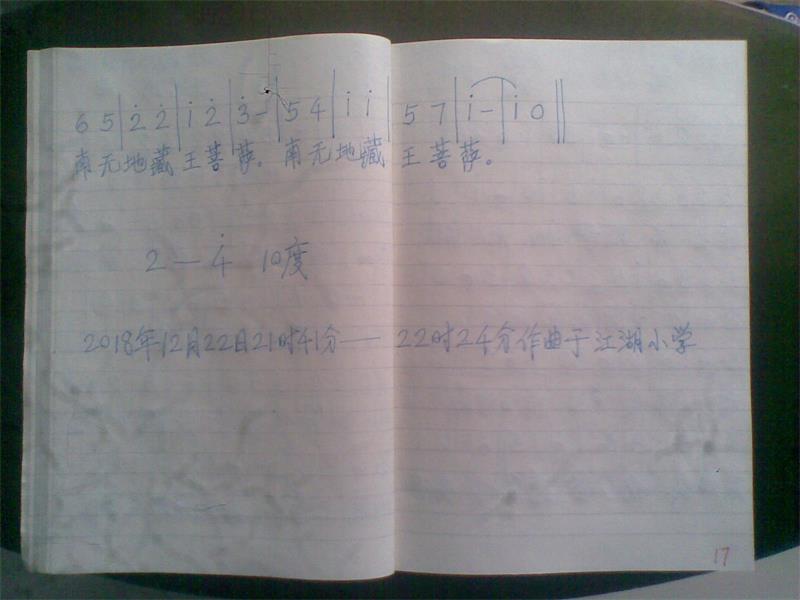 6 5 | 2̇ 2̇ | 1̇ 2̇ | 3̇ - | 5 4 | 1̇ 1̇ | 5 7 | 1̇ - | 1̇ 0 ‖
南无地藏王菩萨。南无地藏王菩萨。
2 — 4̇ 10度
2018年12月22日21时41分——22时24分作曲于江湖小学
17